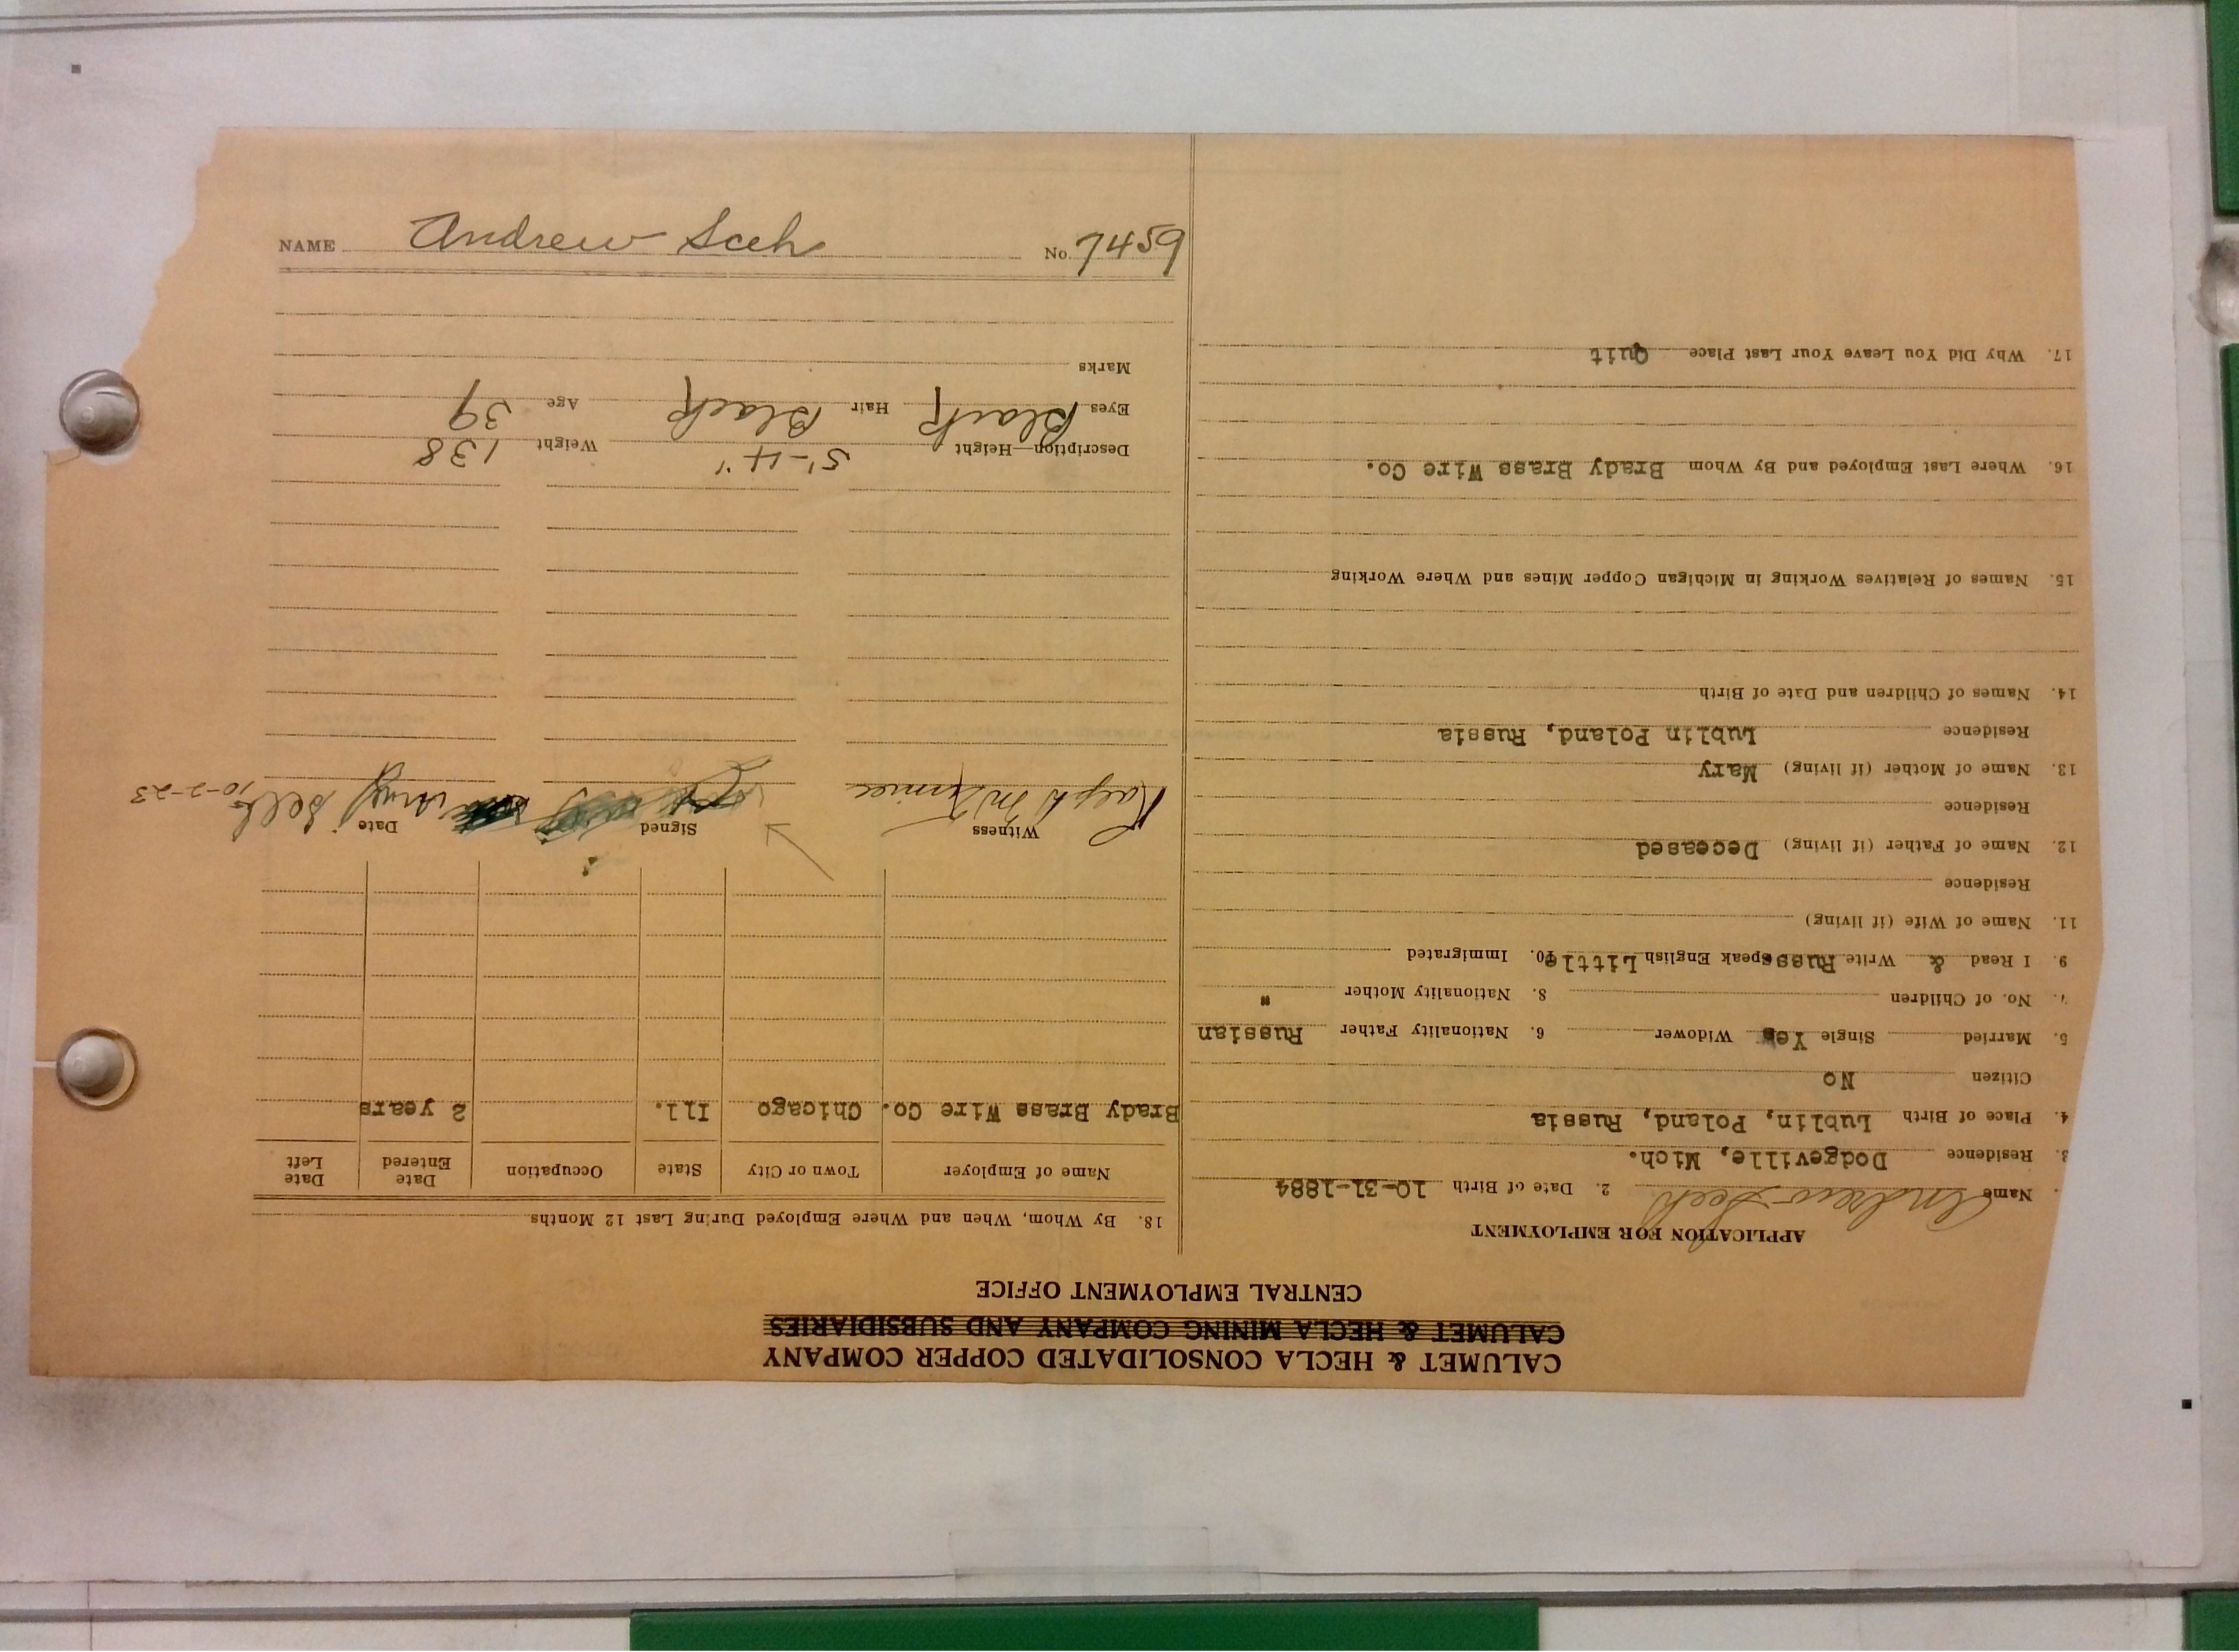 CALUMET & HECLA CONSOLIDATED COPPER COMPANY
CALUMET & HECLA MINING COMPANY AND SUBSIDIARIES
CENTRAL EMPLOYMENT OFFICE
APPLICATION FOR EMPLOYMENT
Name Andrew Sceh 2. Date of Birth 10-31-1884
3. Residence Dodgeville, Mich.
4. Place of Birth Lublin, Poland, Russia
Citizen No
5. Married Single Yes Widower 6. Nationality Father Russian
7. No. of Children 8. Nationality Mother "
9. I Read & Write Russ Speak English Little 10. Immigrated
11. Name of Wife (if living)
Residence
12. Name of Father (if living) Deceased
Residence
13. Name of Mother (if living) Mary
Residence Lublin Poland, Russia
14. Names of Children and Date of Birth
15. Names of Relatives Working in Michigan Copper Mines and Where Working
16. Where Last Employed and By Whom Brady Brass Wire Co.
17. Why Did You Leave Your Last Place Quit
18. By Whom, When and Where Employed During Last 12 Months
Name of Employer Town or City State Occupation Date Entered Date Left
Brady Brass Wire Co. Chicago Ill. 2 years
Witness Signed Date
Ralph 10-2-23
Description—Height 5'-4" Weight 138
Eyes Black Hair Black Age 39
Marks
NAME Andrew Sceh No. 7459